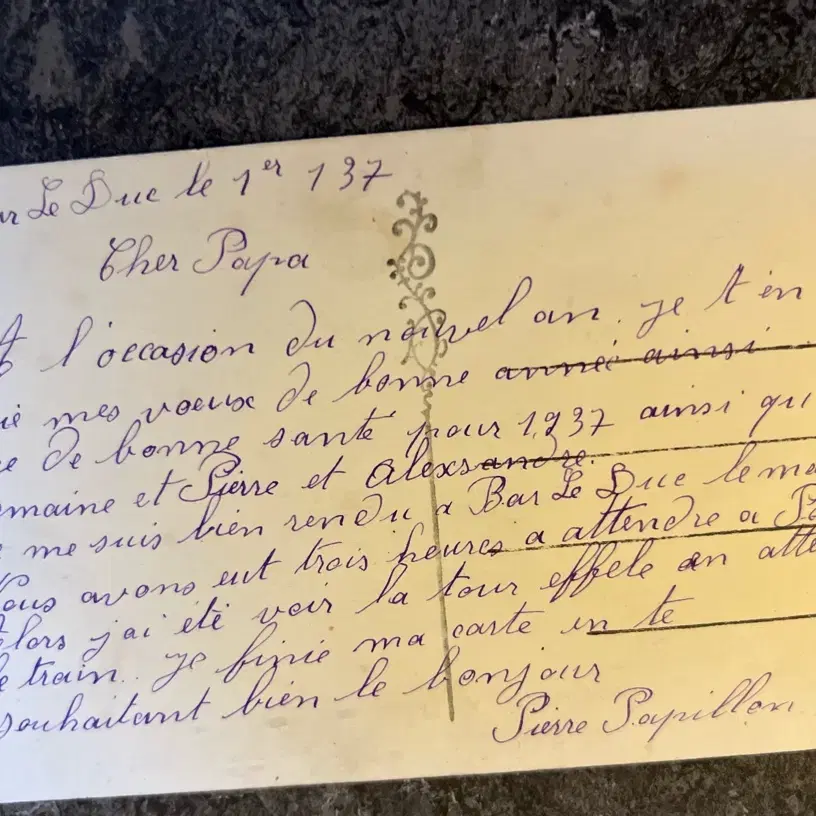 ar Le Duc le 1er 1 37
Cher Papa
A l'occasion du nouvel an. je t'en
ie mes voeux de bonne année ainsi
e de bonne santé pour 1937 ainsi qu
emaine et Pierre et Alexsandre.
me suis bien rendu a Bar Le Duc le ma
Nous avons eut trois heures a attendre a Pa
Alors j'ai été voir la tour effele en atte
le train.. je finie ma carte en te
souhaitant bien le bonjour
Pierre Papillon